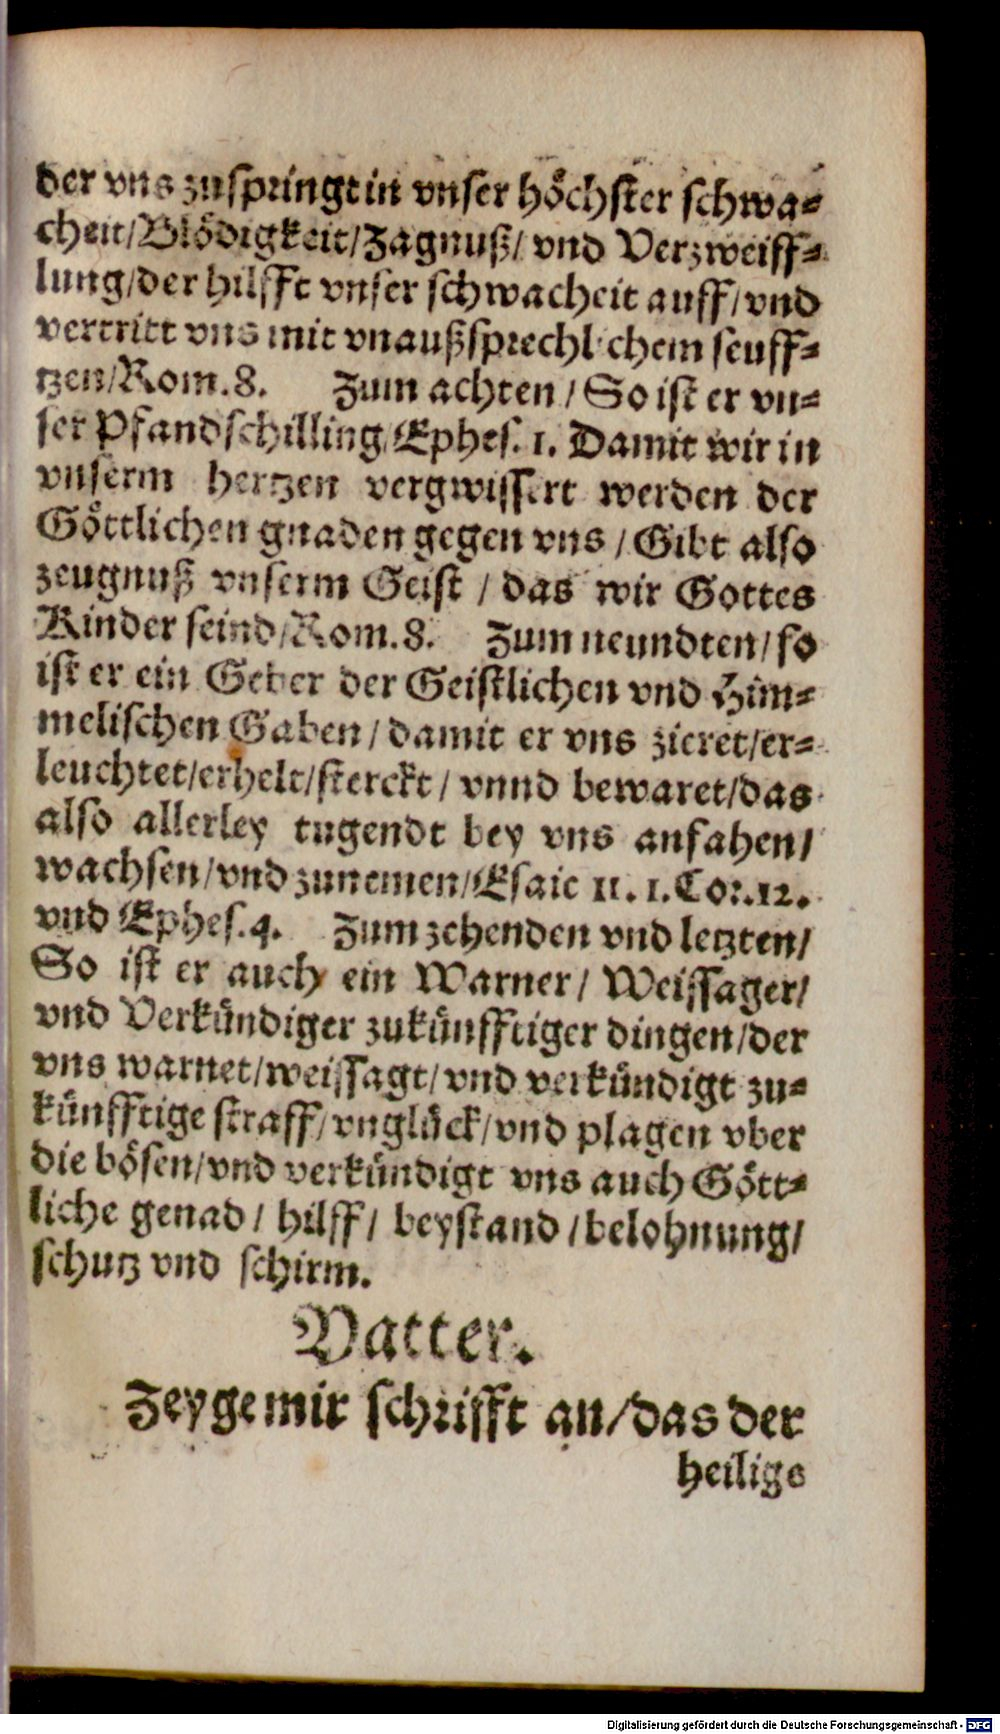 der vns zuspringt in vnser höchster schwa-
cheit/Blödigkeit/Zagnuß/ vnd Verzweiff-
lung/der hilfft vnser schwacheit auff/vnd
vertritt vns mit vnaußsprechlichem seuff-
tzen/Rom.8. Zum achten / So ist er vn-
ser Pfandschilling/Ephes. 1. Damit wir in
vnserm hertzen vergwissert werden der
Göttlichen gnaden gegen vns / Gibt also
zeugnuß vnserm Geist / das wir Gottes
Kinder seind/Rom.8. Zum neundten/so
ist er ein Geber der Geistlichen vnd Him-
melischen Gaben / damit er vns zieret/er-
leuchtet/erhelt/sterckt / vnnd bewaret/das
also allerley tugendt bey vns anfahen/
wachsen/vnd zunemen/Esaie 11. 1.Cor.12.
vnd Ephes.4. Zum zehenden vnd letzten/
So ist er auch ein Warner/ Weissager/
vnd Verkündiger zukünfftiger dingen/der
vns warnet/weissagt/ vnd verkündigt zu-
künfftige straff/vnglück/vnd plagen vber
die bösen/vnd verkündigt vns auch Gött-
liche genad / hilff / beystand / belohnung/
schutz vnd schirm.
Vatter.
Zeyge mir schrifft an/das der
heilige
Digitalisierung gefördert durch die Deutsche Forschungsgemeinschaft - DFG